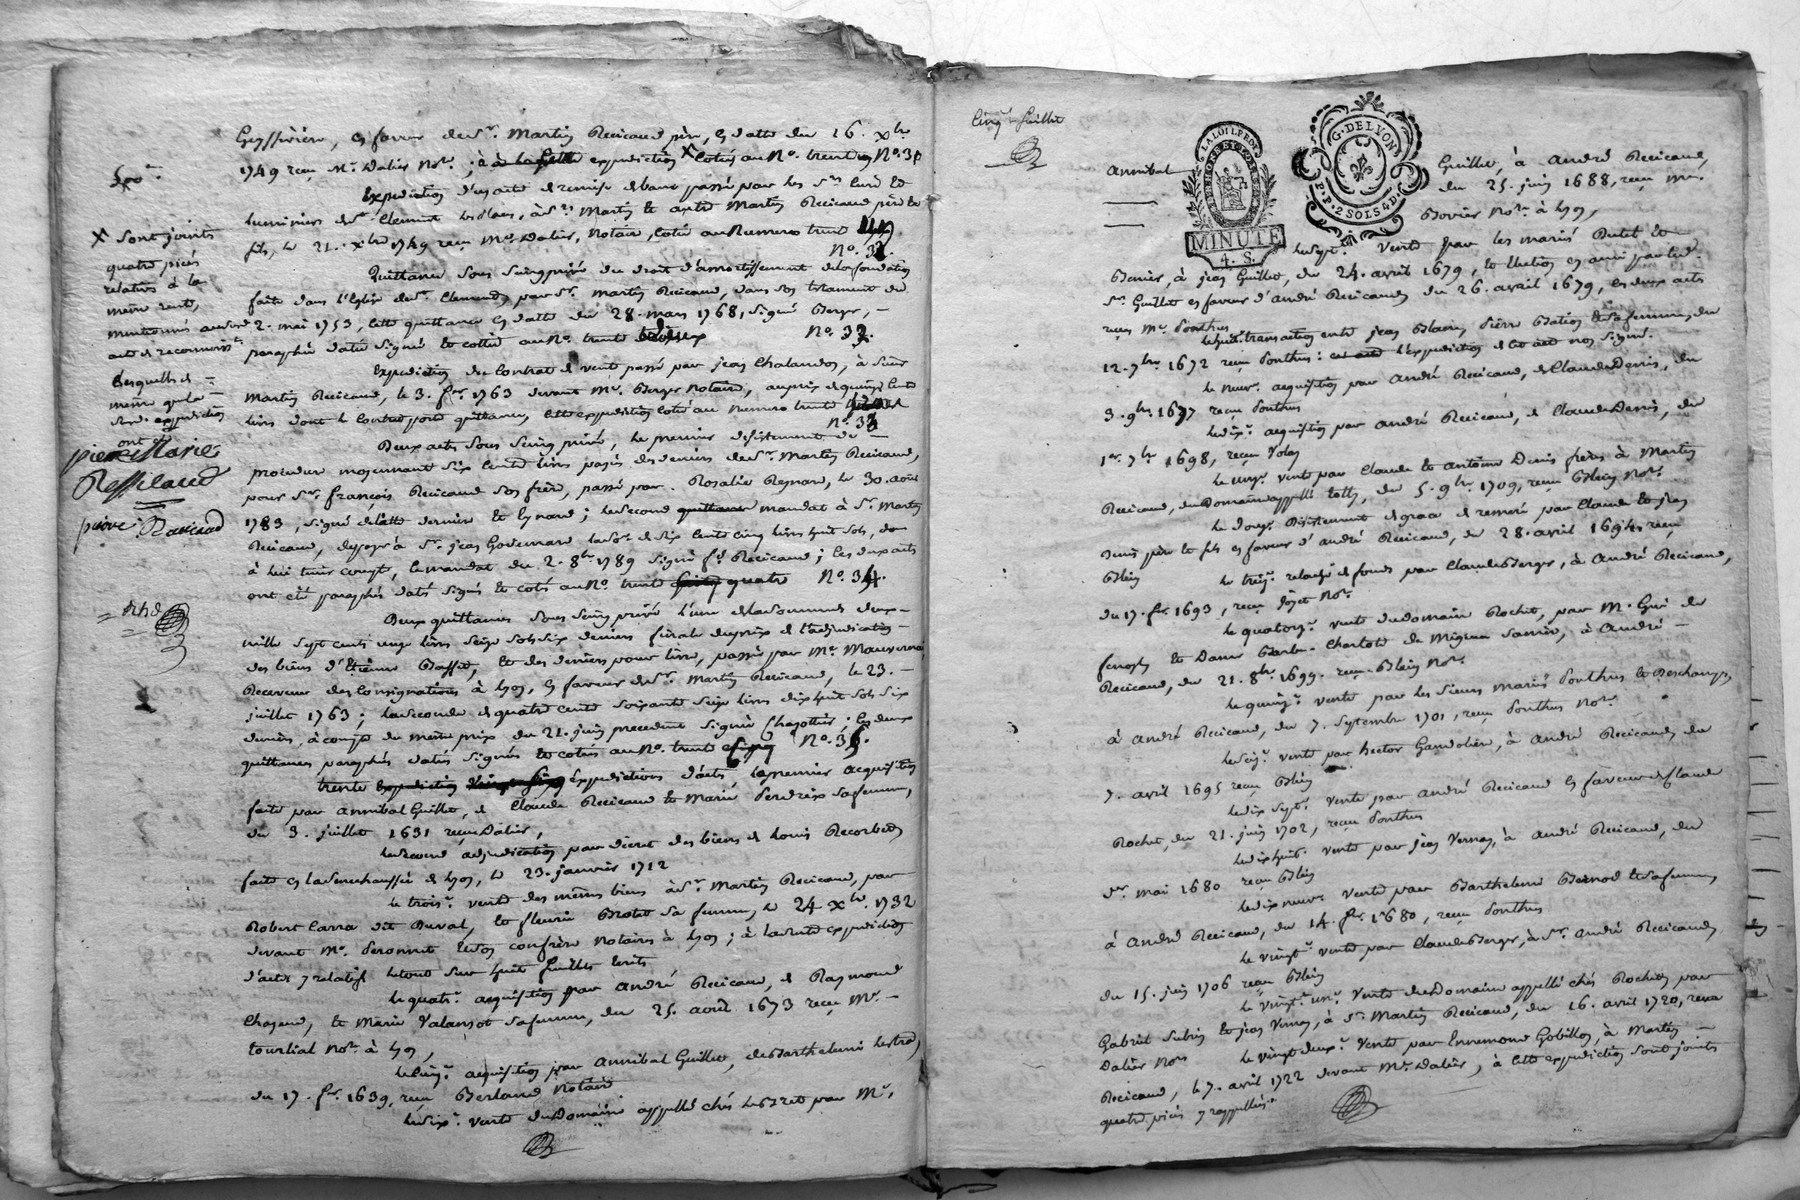 en faveur de Sr. Martin Recicaud père, en datte du 16. Xbre
1749 reçu Me. Dalier Nore. ; expedition X cotés au No. trente No. 31
Expedition d'un acte de remise de banc passé par les Srs. Curé et
luminiers de St. Clement les places, à Srs. Martin et autre Martin Recicaud père et
fils, le 21. Xbre 1749 reçu Me. Dalier, Notaire, cotée au Numero trente
No. 32.
Quittance sous seing privé du droit d'amortissement de la fondation
faite dans l'Eglise de St. Clement, par Sr. Martin Recicaud, dans son testament du
2. mai 1753, cette quittance en datte du 28. mars 1768, signé Berger, –
paraphée datée signée et cottée au No. trente No. 33.
Expedition du contrat de vente passé par jean Chalandon, à Sieur
Martin Recicaud, le 3. fer. 1763 devant Me. Berger Notaire, au prix de quinze cent
livres dont le contrat porte quittance, cette expedition cotée au numero trente
No. 33
Deux actes sous seing privé, le premier desistement de –
procedure moyennant six cents livres payés des deniers de Sr. Martin Recicaud,
pour Sr. françois Recicaud son frère, passé par Rosalie Reynard, le 30. août
1783, signé de cette dernière et Eynard ; le second quittance mandat à Sr. Martin
Recicaud, de payer à Sr. jean Gouvernard la so. de six cents cinq livres huit sols, de
à lui tenir compte, le mandat du 2. 8bre 1789 signé fs. Recicaud ; les deux actes
ont été paraphés datés signés et cotés au No. trente quatre No. 34.
Deux quittances sous seing privé l'une de la somme de deux –
mille sept cents onze livres seize sols six deniers final du prix de l'adjudication –
des biens d'Etienne Bassot, et des deniers pour livre, passée par Me. Mauvernai
Receveur des Consignations à Lyon, en faveur de Sr. Martin Recicaud, le 23. –
juillet 1763 ; la seconde de quatre cents soixante seize livres dix huit sols six
deniers, à compte du même prix du 21. juin precedent signée Chazottier ; les deux
quittances paraphées datées signées et cotées au No. trente cinq No. 35.
trente expeditions d'actes la premier acquisition
faite par Annibal Guillet, de Claude Recicaud et Marie Perdrix sa femme,
du 3. juillet 1631 reçu Dalier,
le second adjudication par decret des biens de Louis Recorbet
faite en la Senechaussée de Lyon, le 23. janvier 1712
le trois. vente des mêmes biens à Sr. Martin Recicaud, par
Robert Carra dit Duval, et fleurie Brotet sa femme, le 24 Xbre. 1732
devant Me. Peronnet et son confrère Notaires à Lyon ; à la suite expedition
d'actes y relatifs le tout sur huit feuilles écrits
le quatr. acquisition par André Recicaud, de Raymond
Chazaud, et Marie Valansot sa femme, du 25. août 1673 reçu Me. –
tourlial Nore. à Lyon,
le cinq. acquisition par Annibal Guillet, de Barthelemi
du 17. fer. 1639, reçu Berland Notaire
le six. vente du Domaine appellé chés par Me.
X sont joints
quatre pièces
relatives à la
même rente,
mentionnés
acte de reconnoiss.
lesquelles de –
même que la –
expedition
ont été
pierre Marie
Ressicaud
pierre Ravicaud
Cinqe. feuillet
LA LOI LE ROI
MINUTE
4. S.
G. DE LYON
P. P. 2 SOLS 4 D.
Annibal Guillet, à André Recicaud,
du 25. juin 1688, reçu Me.
Bovier Nore. à Lyon,
le sept. vente par les mariés Dutel et
Benier, à jean Guillet, du 24. avril 1679, et election en ami par led.
Sr. Guillet en faveur d'André Recicaud du 26. avril 1679, les deux actes
reçus Me. Ponthus
le huit. transaction entre jean Blain, Pierre Bation et sa femme, du
12. 7bre 1672 reçu Ponthus : l'expedition de cet acte non signé.
le neuv. acquisition par André Recicaud, de Claude Denis, du
3. 9bre 1677 reçu Ponthus
le dix. acquisition par André Recicaud, de Claude Denis, du
1er. 7bre 1698, reçu Volay
le onz. vente par Claude et Antoine Denis frères à Martin
Recicaud, du Domaine appellé , du 5. 9bre 1709, reçu Blein Nore.
le douz. Desistement de grace de reméré par Claude et jean
Denis père et fils en faveur d'André Recicaud, du 28. avril 1694, reçu
Blein
le treiz. relaché de fonds par Claude Berger, à André Recicaud,
du 17. fer. 1693, reçu Nore.
le quatorz. vente du domaine Rochet, par M. Gui de
et Dame Barbe-Charlote de , à André –
Recicaud, du 21. 8bre 1699. reçu Blein Nore.
le quinz. vente par les sieurs mariés Ponthus et Deschamps,
à André Recicaud, du 7. Septembre 1701, reçu Ponthus Nore.
le seiz. vente par hector Gandolière, à André Recicaud du
7. avril 1695 reçu Blein
le dix sept. vente par André Recicaud en faveur de Claude
Rochet, du 21. juin 1702, reçu Ponthus
le dix huit. vente par jean Vernay, à André Recicaud, du
1er. mai 1680 reçu Blein
le dix neuv. vente par Barthelemi Bernod et sa femme,
à André Recicaud, du 14. fer. 1680, reçu Ponthus
le vingt. vente par Claude Berger, à Sr. André Recicaud,
du 15. juin 1706 reçu Blein
le vingt un. vente du Domaine appellé chés Rochet, par
Gabriel Subrin et jean Vernay, à Sr. Martin Recicaud, du 16. avril 1720, reçu
Dalier Nore
le vingt deux. vente par Ennemond Gobillon, à Martin –
Recicaud, le 7. avril 1722 devant Me. Dalier, à cette expedition sont joints
quatre pièces y rappellées.